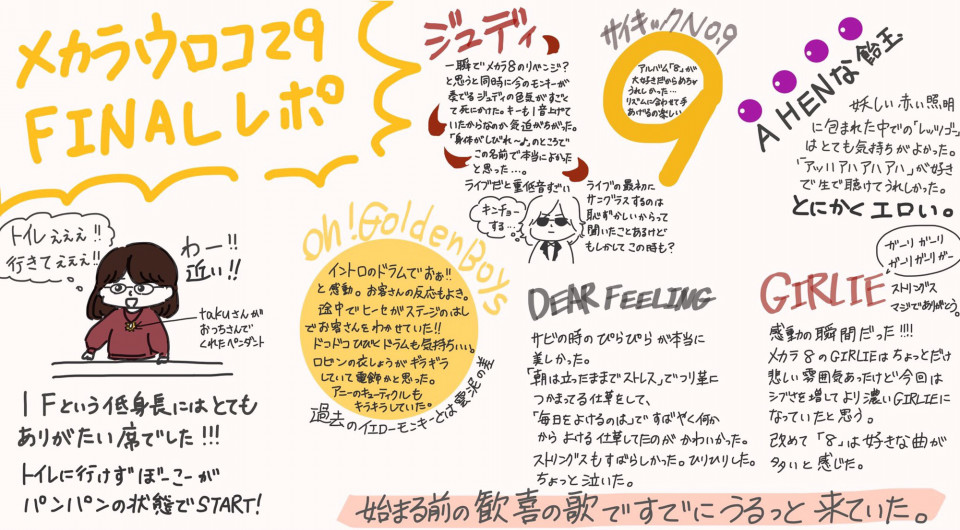 メカラウロコ29
FINALレポ
トイレえぇぇ!!
行きてえぇぇ!!
わー!!
近い!!
takuさんが
おっちさんで
くれたペンダント
1Fという低身長にはとても
ありがたい席でした!!!
トイレに行けずぼーこーが
パンパンの状態でSTART!
ジュディ
一瞬でメカラ8のリベンジ?
と思うと同時に今のモンキーが
奏でるジュディの色気がすごく
て死にかけた。キーも1音上げて
いたからなのか気迫がちがった。
「身体がしびれ〜♪」のところで
この名前で本当によかった
と思った…。
ライブだと重低音すごい
キンチョー
する…
ライブの最初に
サングラスするのは
恥ずかしいからって
聞いたことあるけど
もしかしてこの時も?
サイキックNO.9
9
アルバム「8」が
大好きだからめちゃ
うれしかった…
リズムに合わせて手
あげるの楽しい
A HENな飴玉
妖しい赤い照明
に包まれた中での「レッツゴー」
はとても気持ちがよかった。
「アッハアハアハアハ」が好き
で生で聴けてうれしかった。
とにかくエロい。
Oh!Golden Boys
イントロのドラムでおぉ!!
と感動。お客さんの反応もよき。
途中でヒーセがステージのはし
でお客さんをわかせていた!!
ドコドコひびくドラムも気持ちいい。
ロビンの衣しょうがギラギラ
していて電飾かと思った。
アニーのキューティクルも
キラキラしていた。
過去のイエローモンキーとは雲泥の差
DEAR FEELING
サビの時のぴらぴらが本当に
美しかった。
「朝は立ったままでストレス」でつり革に
つかまってる仕草をして、
「毎日をよけるのは」ですばやく何か
からよける仕草してたのがかわいかった。
ストリングスもすばらしかった。ひりひりした。
ちょっと泣いた。
GIRLIE
ガーリ ガーリ
ガーリガーリガー
ストリングス
マジでありがとう。
感動の瞬間だった!!!!
メカラ8のGIRLIEはちょっとだけ
悲しい雰囲気あったけど今回は
シブさを増してより濃いGIRLIEに
なっていたと思う。
改めて「8」は好きな曲が
多いと感じた。
始まる前の歓喜の歌ですでにうるっと来ていた。